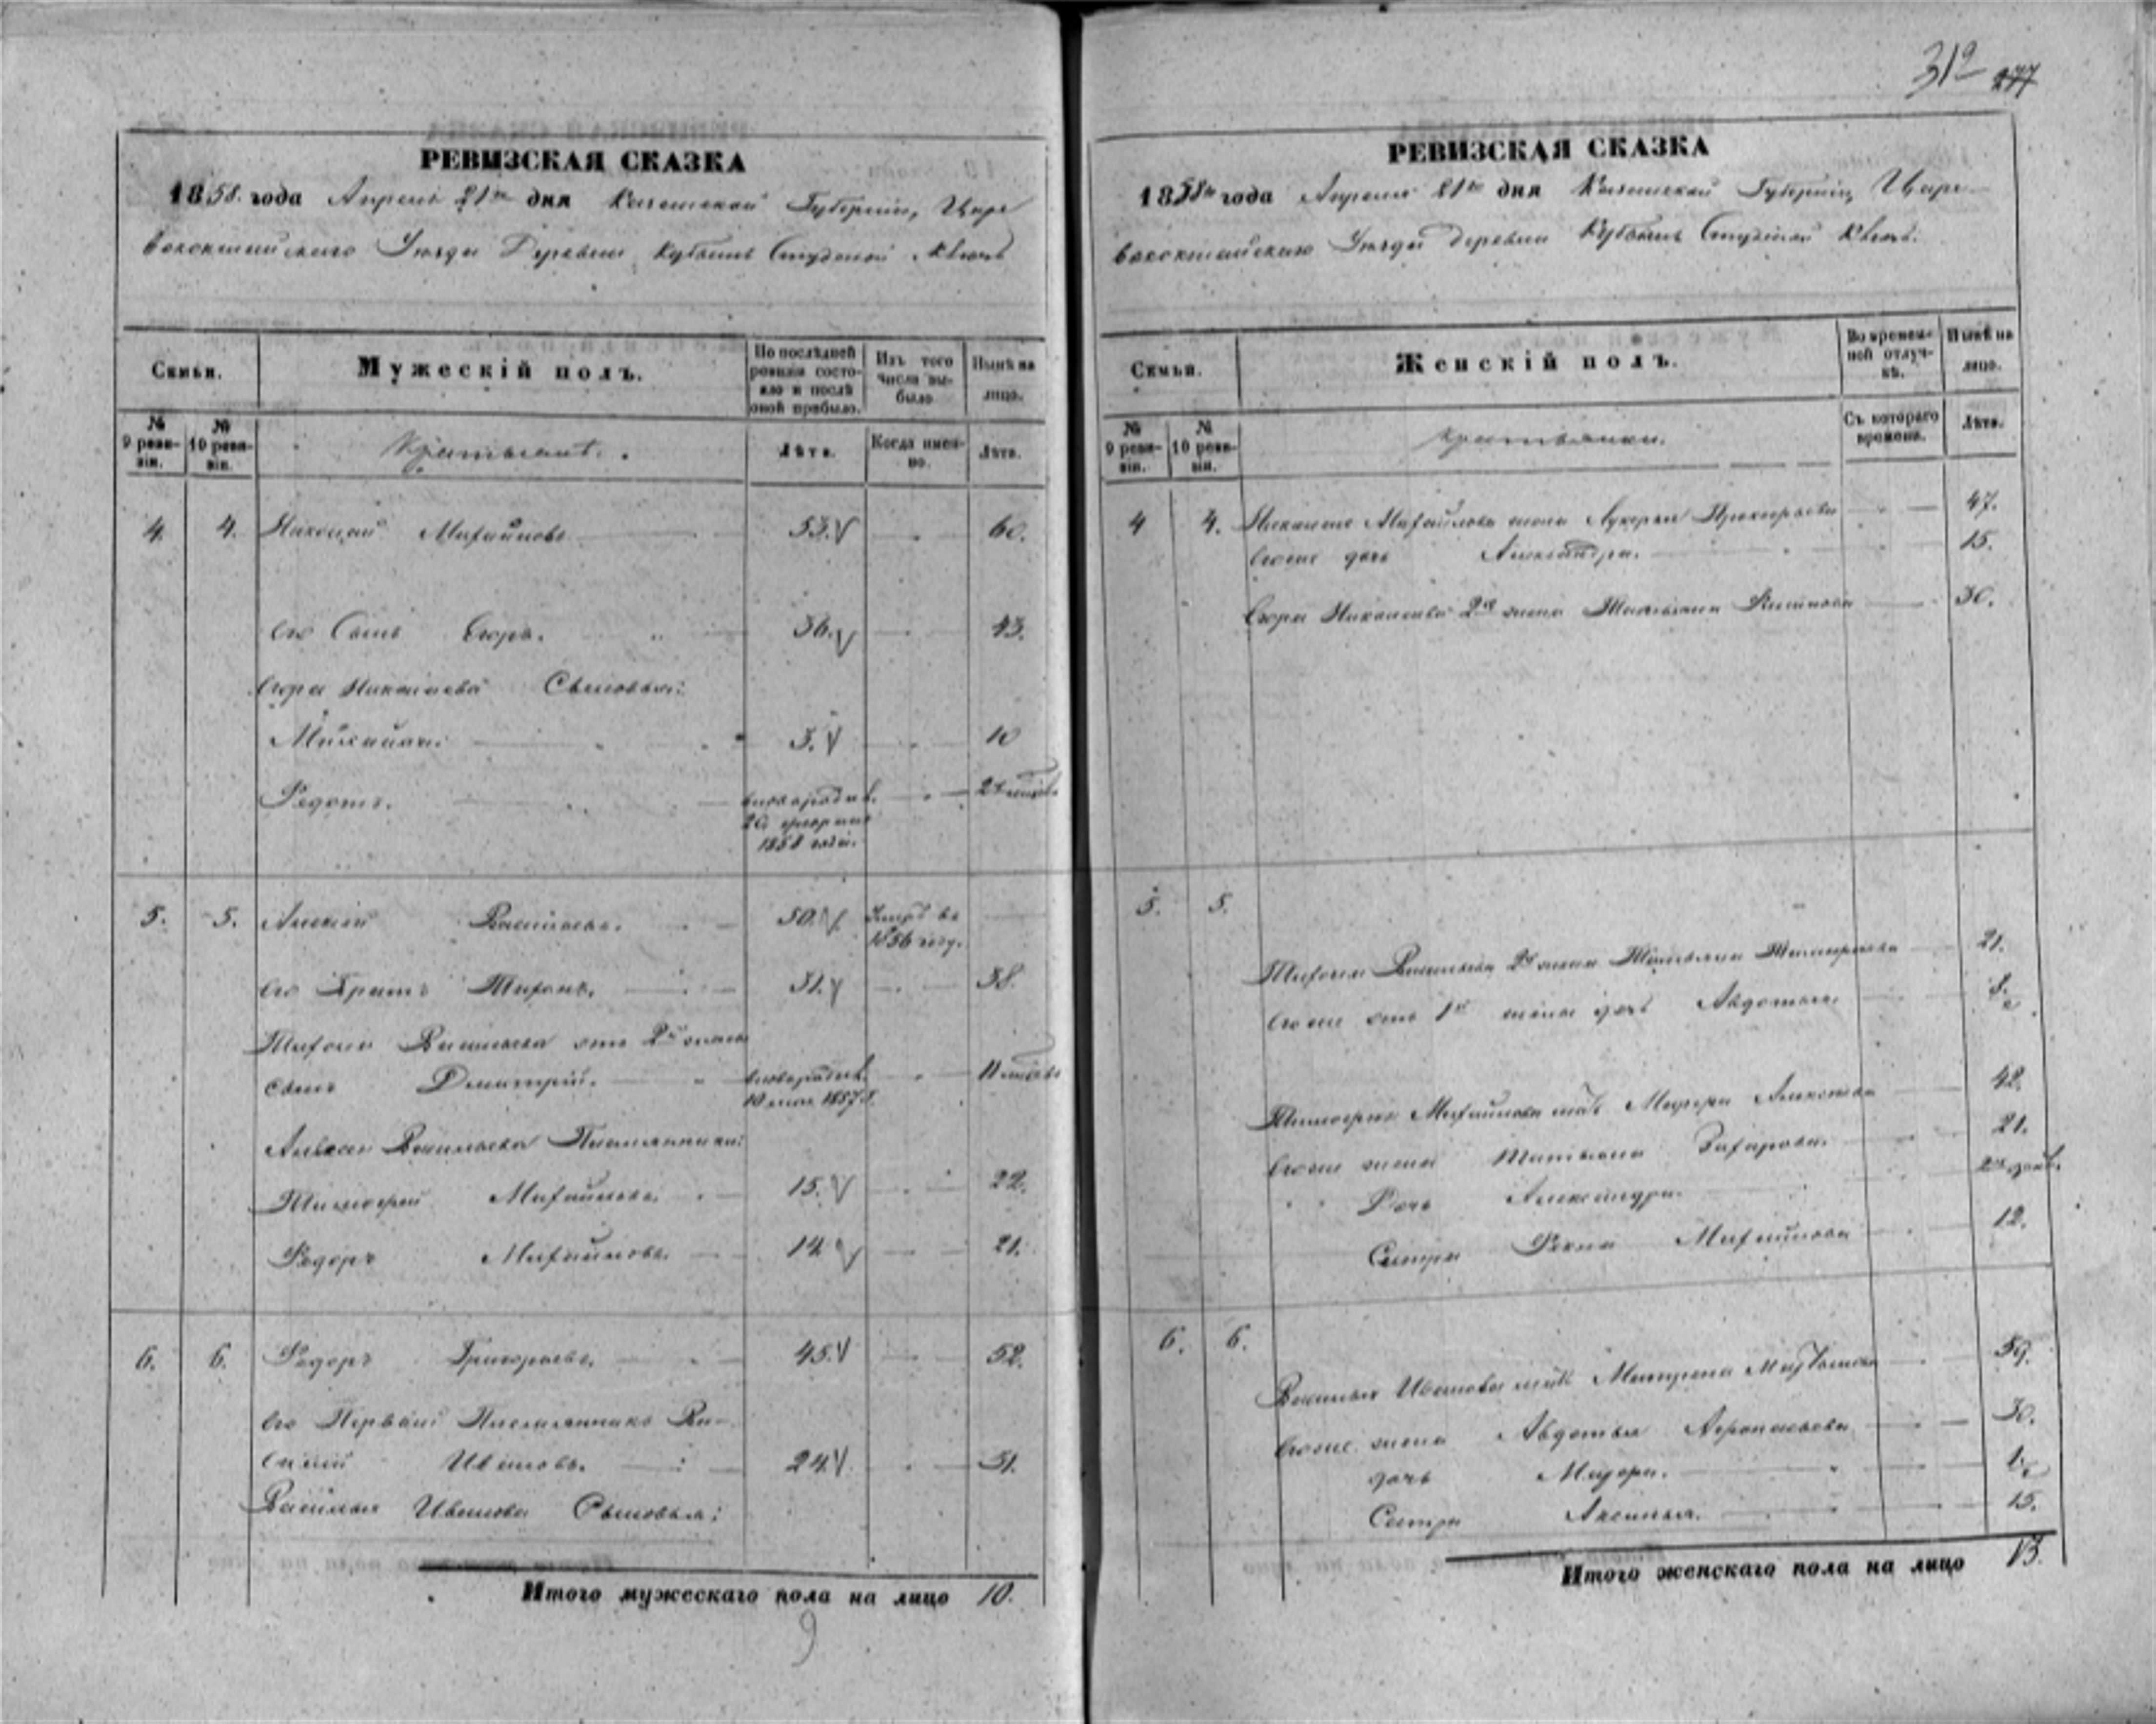 312 277
РЕВИЗСКАЯ СКАЗКА
1858. года Апреля 21го дня Казанской Губернии, Царе
вококшайскаго Уезда Деревни Кубашъ Студеной Ключь
Семьи.
Мужескій полъ.
По послѣдней ревизіи состояло и послѣ оной прибыло.
Изъ того числа выбыло
Нынѣ на лицо.
№ 9 ревизіи.
№ 10 ревизіи.
Крестьяне.
Лѣта.
Когда именно.
Лѣта.
4. 4. Николай Михайловъ 53. 60.
Его Сынъ Егоръ. 36. 43.
Егора Николаева Сыновья:
Михайла 3. 10
Федотъ. вноворожд. 2х
20 февраля
1858 года.
5. 5. Алексей Васильевъ. 50. Умръ въ
1856 году.
Его Братъ Тихонъ. 31. 38.
Тихона Васильева отъ 2й жены
сынъ Дмитрій. вноворожд. 11 месяцъ
10 мая 1857 г.
Алексея Васильева Племянники:
Тимофей Михайловъ. 15. 22.
Федоръ Михайловъ. 14 21.
6. 6. Федоръ Григорьевъ. 45. 52.
Его Первый Племянникъ Ва-
силий Ивановъ. 24. 31.
Василья Иванова Сыновья:
Итого мужескаго пола на лицо 10.
9
РЕВИЗСКАЯ СКАЗКА
1858го года Апреля 21го дня Казанской Губерніи, Царе-
вококшайскаго Уезда Деревни Кубашъ Студеной Ключь.
Семьи.
Женскій полъ.
Во временной отлучкѣ.
Нынѣ на лицо.
№ 9 ревизіи.
№ 10 ревизіи.
Крестьянки.
Съ котораго времени.
Лѣта.
4 4. Николая Михайлова жена Лукерья Прокофьева 47.
Егоже дочь Александра. 15.
Егора Николаева 2я жена Татьяна 30.
5. 5.
Тихона Васильева 2я жена Татьяна 21.
Егоже отъ 1й жены дочь Авдотья 8.
Тимофея Михайлова мать Мавра Алексеева 42.
Егоже жена Татьяна Захарова. 21.
Дочь Александра.
Сестра Фекла Михайлова 12.
6. 6.
Василья Иванова мать Матрена 59.
Егоже жена Авдотья 30.
дочь Мавра. 1/2
Сестра Аксинья. 15.
Итого женскаго пола на лицо 13.